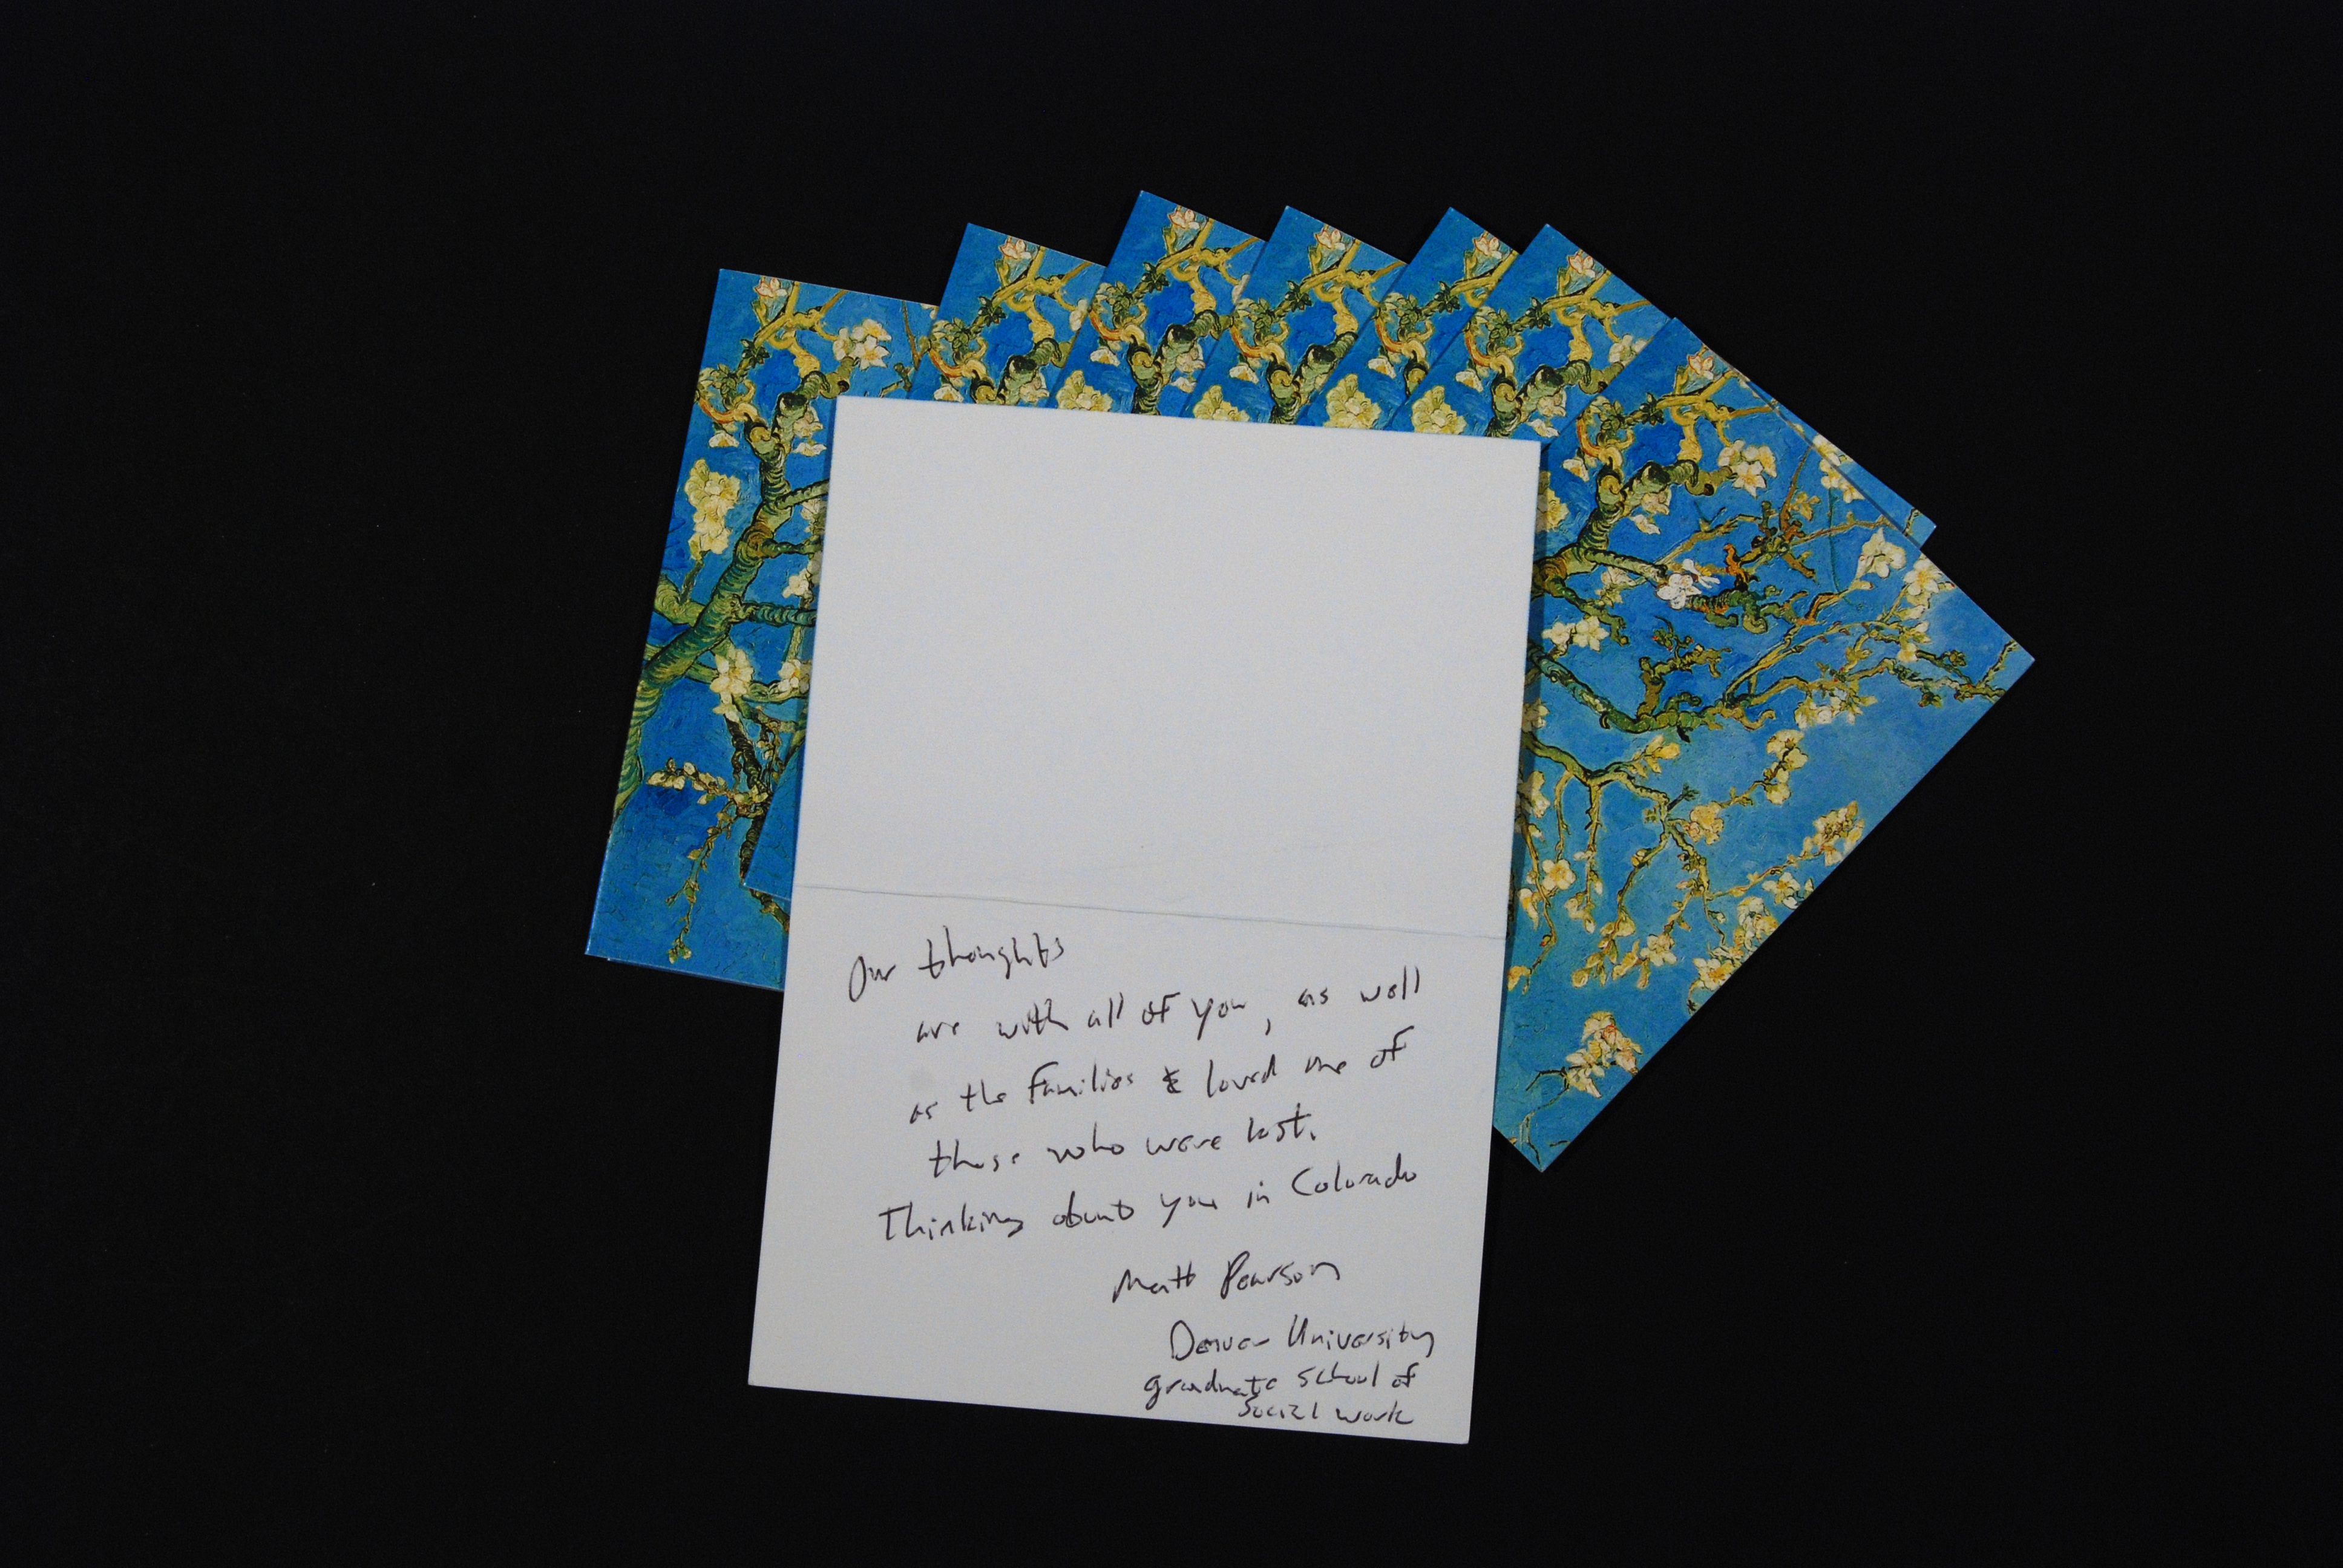 Our thoughts
are with all of you, as well
as the families & loved one of
those who were lost.
Thinking about you in Colorado
Matt Pearson
Denver University
graduate school of
social work